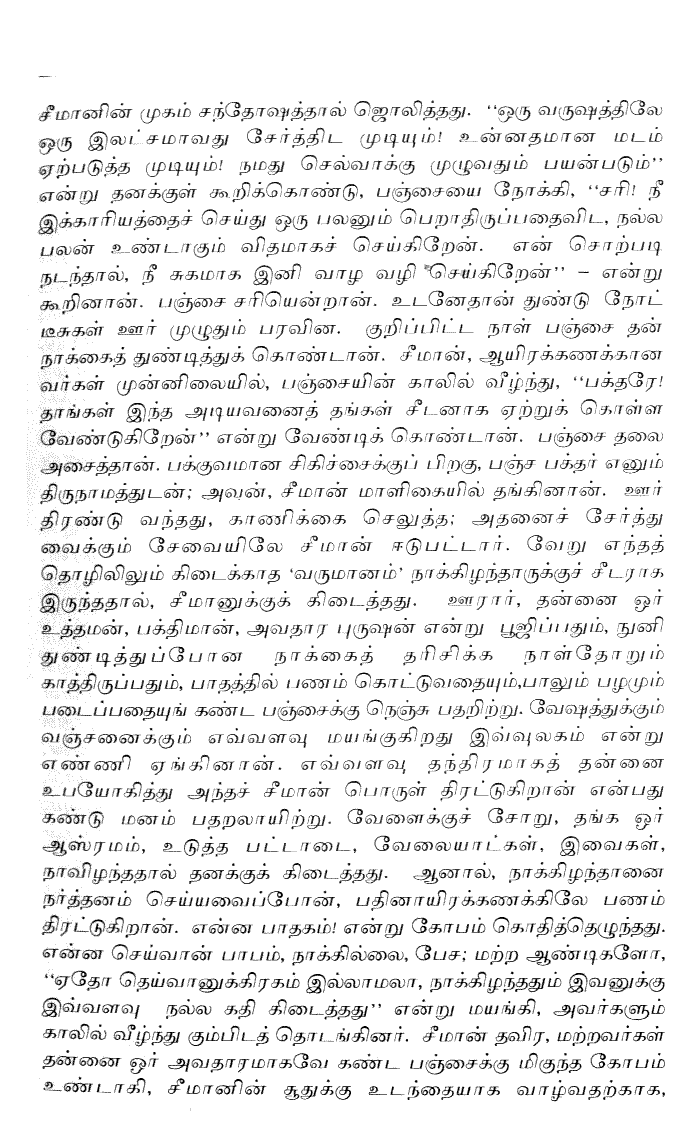 சீமானின் முகம் சந்தோஷத்தால் ஜொலித்தது. “ஒரு வருஷத்திலே
ஒரு இலட்சமாவது சேர்த்திட முடியும்! உன்னதமான மடம்
ஏற்படுத்த முடியும்! நமது செல்வாக்கு முழுவதும் பயன்படும்”
என்று தனக்குள் கூறிக்கொண்டு, பஞ்சையை நோக்கி, “சரி! நீ
இக்காரியத்தைச் செய்து ஒரு பலனும் பெறாதிருப்பதைவிட, நல்ல
பலன் உண்டாகும் விதமாகச் செய்கிறேன். என் சொற்படி
நடந்தால், நீ சுகமாக இனி வாழ வழி செய்கிறேன்” – என்று
கூறினான். பஞ்சை சரியென்றான். உடனேதான் துண்டு நோட்
டீசுகள் ஊர் முழுதும் பரவின. குறிப்பிட்ட நாள் பஞ்சை தன்
நாக்கைத் துண்டித்துக் கொண்டான். சீமான், ஆயிரக்கணக்கான
வர்கள் முன்னிலையில், பஞ்சையின் காலில் வீழ்ந்து, “பக்தரே!
தாங்கள் இந்த அடியவனைத் தங்கள் சீடனாக ஏற்றுக் கொள்ள
வேண்டுகிறேன்” என்று வேண்டிக் கொண்டான். பஞ்சை தலை
அசைத்தான். பக்குவமான சிகிச்சைக்குப் பிறகு, பஞ்ச பக்தர் எனும்
திருநாமத்துடன்; அவன், சீமான் மாளிகையில் தங்கினான். ஊர்
திரண்டு வந்தது, காணிக்கை செலுத்த; அதனைச் சேர்த்து
வைக்கும் சேவையிலே சீமான் ஈடுபட்டார். வேறு எந்தத்
தொழிலிலும் கிடைக்காத ‘வருமானம்’ நாக்கிழந்தாருக்குச் சீடராக
இருந்ததால், சீமானுக்குக் கிடைத்தது. ஊரார், தன்னை ஓர்
உத்தமன், பக்திமான், அவதார புருஷன் என்று பூஜிப்பதும், நுனி
துண்டித்துப்போன நாக்கைத் தரிசிக்க நாள்தோறும்
காத்திருப்பதும், பாதத்தில் பணம் கொட்டுவதையும்,பாலும் பழமும்
படைப்பதையுங் கண்ட பஞ்சைக்கு நெஞ்சு பதறிற்று. வேஷத்துக்கும்
வஞ்சனைக்கும் எவ்வளவு மயங்குகிறது இவ்வுலகம் என்று
எண்ணி ஏங்கினான். எவ்வளவு தந்திரமாகத் தன்னை
உபயோகித்து அந்தச் சீமான் பொருள் திரட்டுகிறான் என்பது
கண்டு மனம் பதறலாயிற்று. வேளைக்குச் சோறு, தங்க ஓர்
ஆஸ்ரமம், உடுத்த பட்டாடை, வேலையாட்கள், இவைகள்,
நாவிழந்ததால் தனக்குக் கிடைத்தது. ஆனால், நாக்கிழந்தானை
நர்த்தனம் செய்யவைப்போன், பதினாயிரக்கணக்கிலே பணம்
திரட்டுகிறான். என்ன பாதகம்! என்று கோபம் கொதித்தெழுந்தது.
என்ன செய்வான் பாபம், நாக்கில்லை, பேச; மற்ற ஆண்டிகளோ,
“ஏதோ தெய்வானுக்கிரகம் இல்லாமலா, நாக்கிழந்ததும் இவனுக்கு
இவ்வளவு நல்ல கதி கிடைத்தது” என்று மயங்கி, அவர்களும்
காலில் வீழ்ந்து கும்பிடத் தொடங்கினர். சீமான் தவிர, மற்றவர்கள்
தன்னை ஓர் அவதாரமாகவே கண்ட பஞ்சைக்கு மிகுந்த கோபம்
உண்டாகி, சீமானின் சூதுக்கு உடந்தையாக வாழ்வதற்காக,